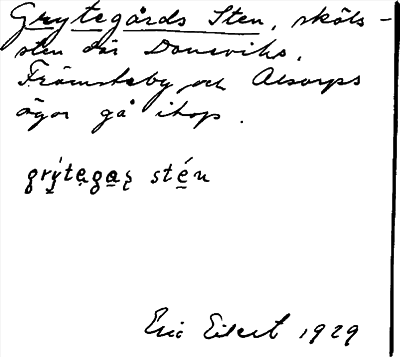 Grytegårds Sten, sköls-
sten där Donsviks,
Främsteby och Alsarps
ägor gå ihop.
grýtegaṣ stén
Eric Eilert 1929